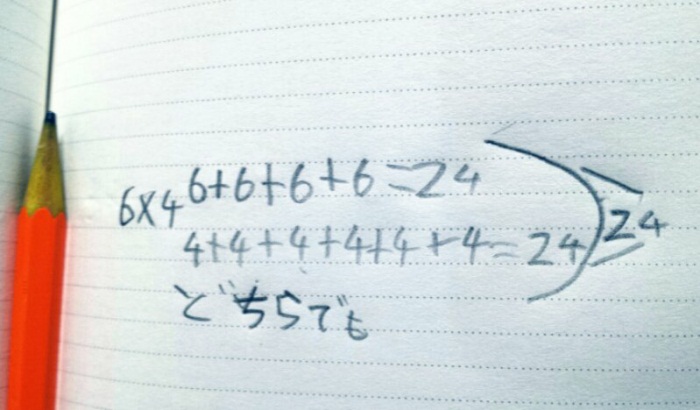 6×4 6+6+6+6=24
4+4+4+4+4+4=24
24
どちらでも